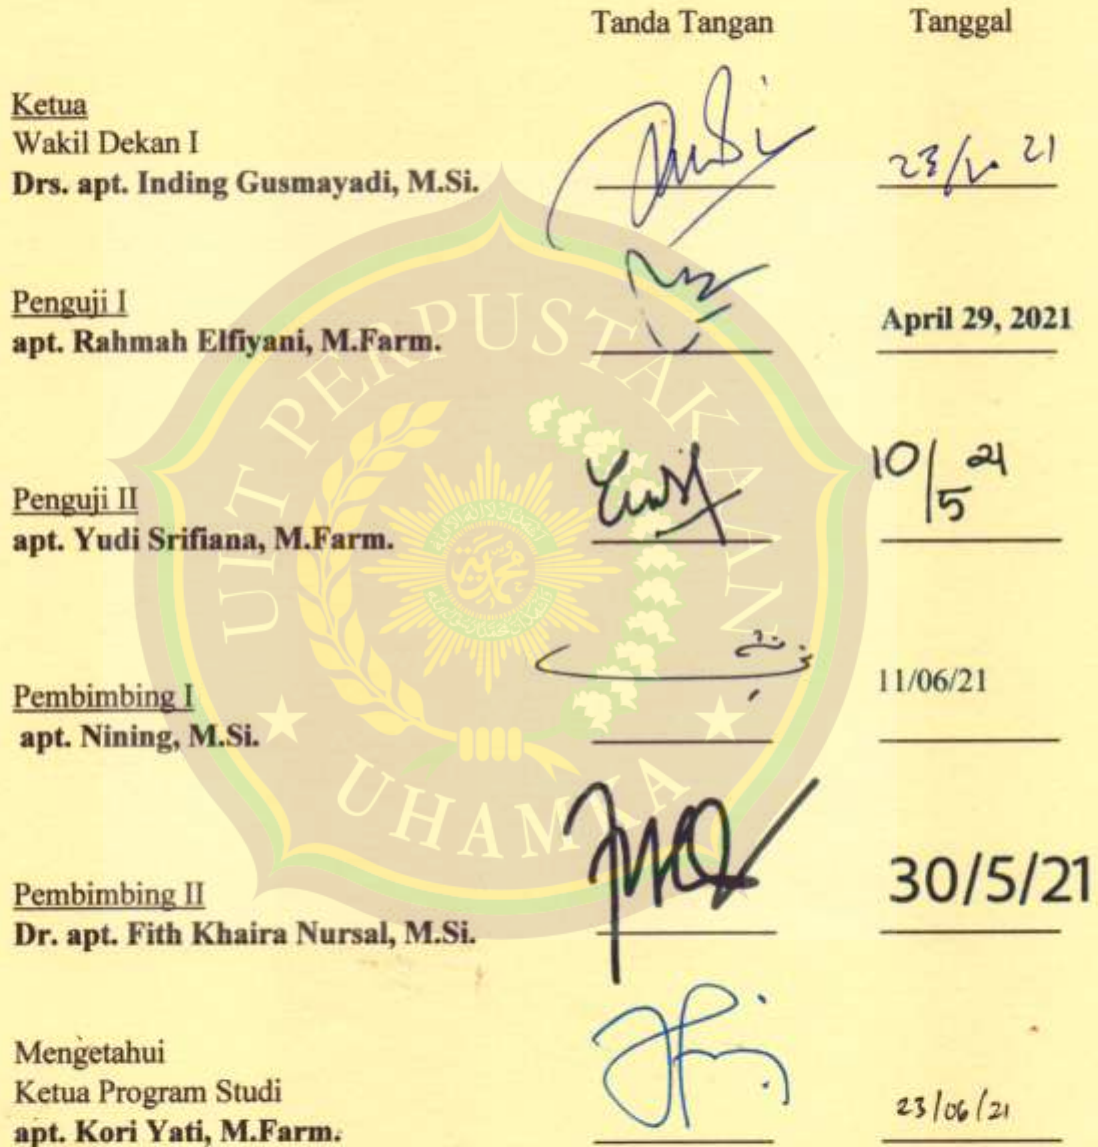 Tanda Tangan Tanggal
Ketua
Wakil Dekan I
Drs. apt. Inding Gusmayadi, M.Si.
Penguji I
apt. Rahmah Elfiyani, M.Farm. April 29, 2021
Penguji II 10/5 21
apt. Yudi Srifiana, M.Farm.
Pembimbing I 11/06/21
apt. Nining, M.Si.
Pembimbing II 30/5/21
Dr. apt. Fith Khaira Nursal, M.Si.
Mengetahui
Ketua Program Studi
apt. Kori Yati, M.Farm. 23/06/21
UPT PERPUSTAKAAN
UHAMKA